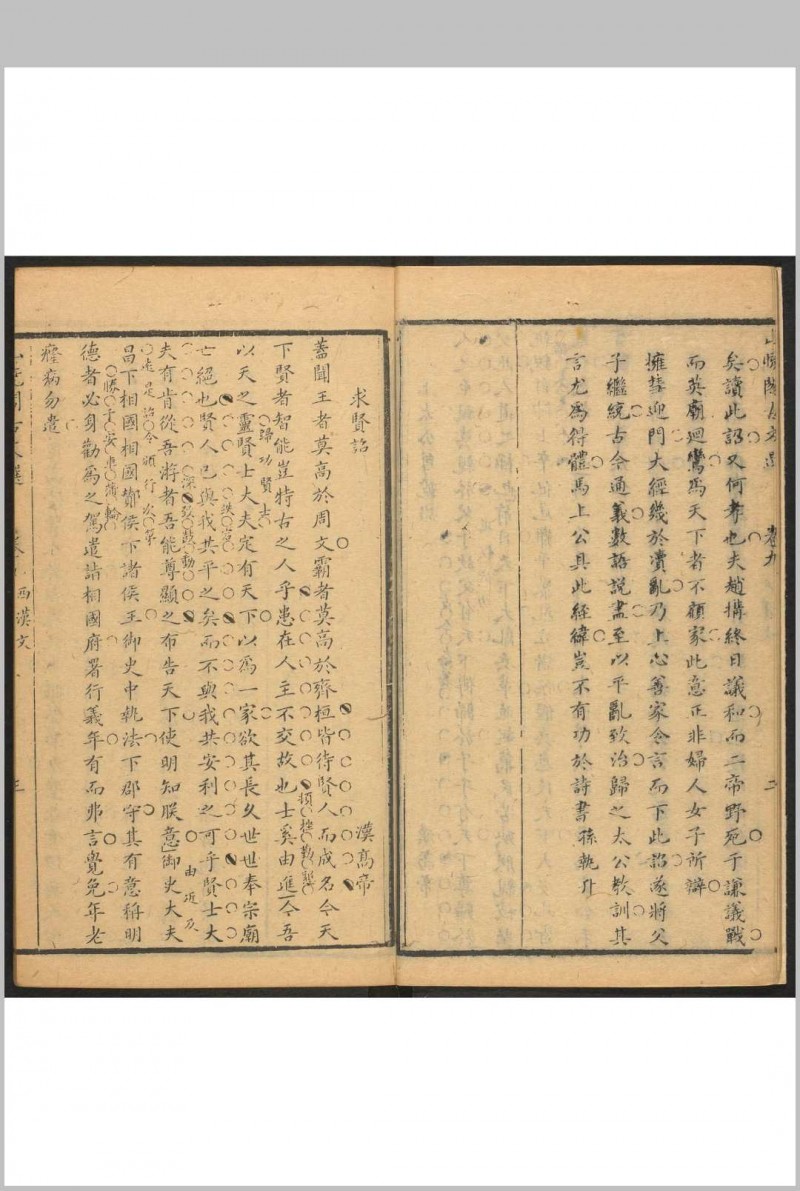 卷九
二
矣讀此詔又何孝也夫趙搆終日議和而二帝野死于謙議戰
而英廟迴鸞為天下者不顧家此意正非婦人女子所辯
擁彗迎門大經幾於瀆亂乃上心善家令言而下此詔遂將父
子繼統古今通義數語說盡至以平亂致治歸之太公教訓其
言尤為得體馬上公具此經緯豈不有功於詩書孫執升
求賢詔
漢高帝
蓋聞王者莫高於周文霸者莫高於齊桓皆待賢人而成名今天
下賢者智能豈特古之人乎患在人主不交故也士奚由進今吾
以天之靈賢士大夫定有天下以為一家欲其長久世世奉宗廟
歸功賢士
亡絕也賢人已與我共平之矣而不與我共安利之可乎賢士大
夫有肯從吾將者吾能尊顯之布告天下使明知朕意御史大夫
由近及
昌下相國相國酇侯下諸侯王御史中執法下郡守其有意稱明
是詔令頒行次第
德者必身勸為之駕遣詣相國府署行義年有而弗言覺免年老
癃病勿遣
西漢文
三